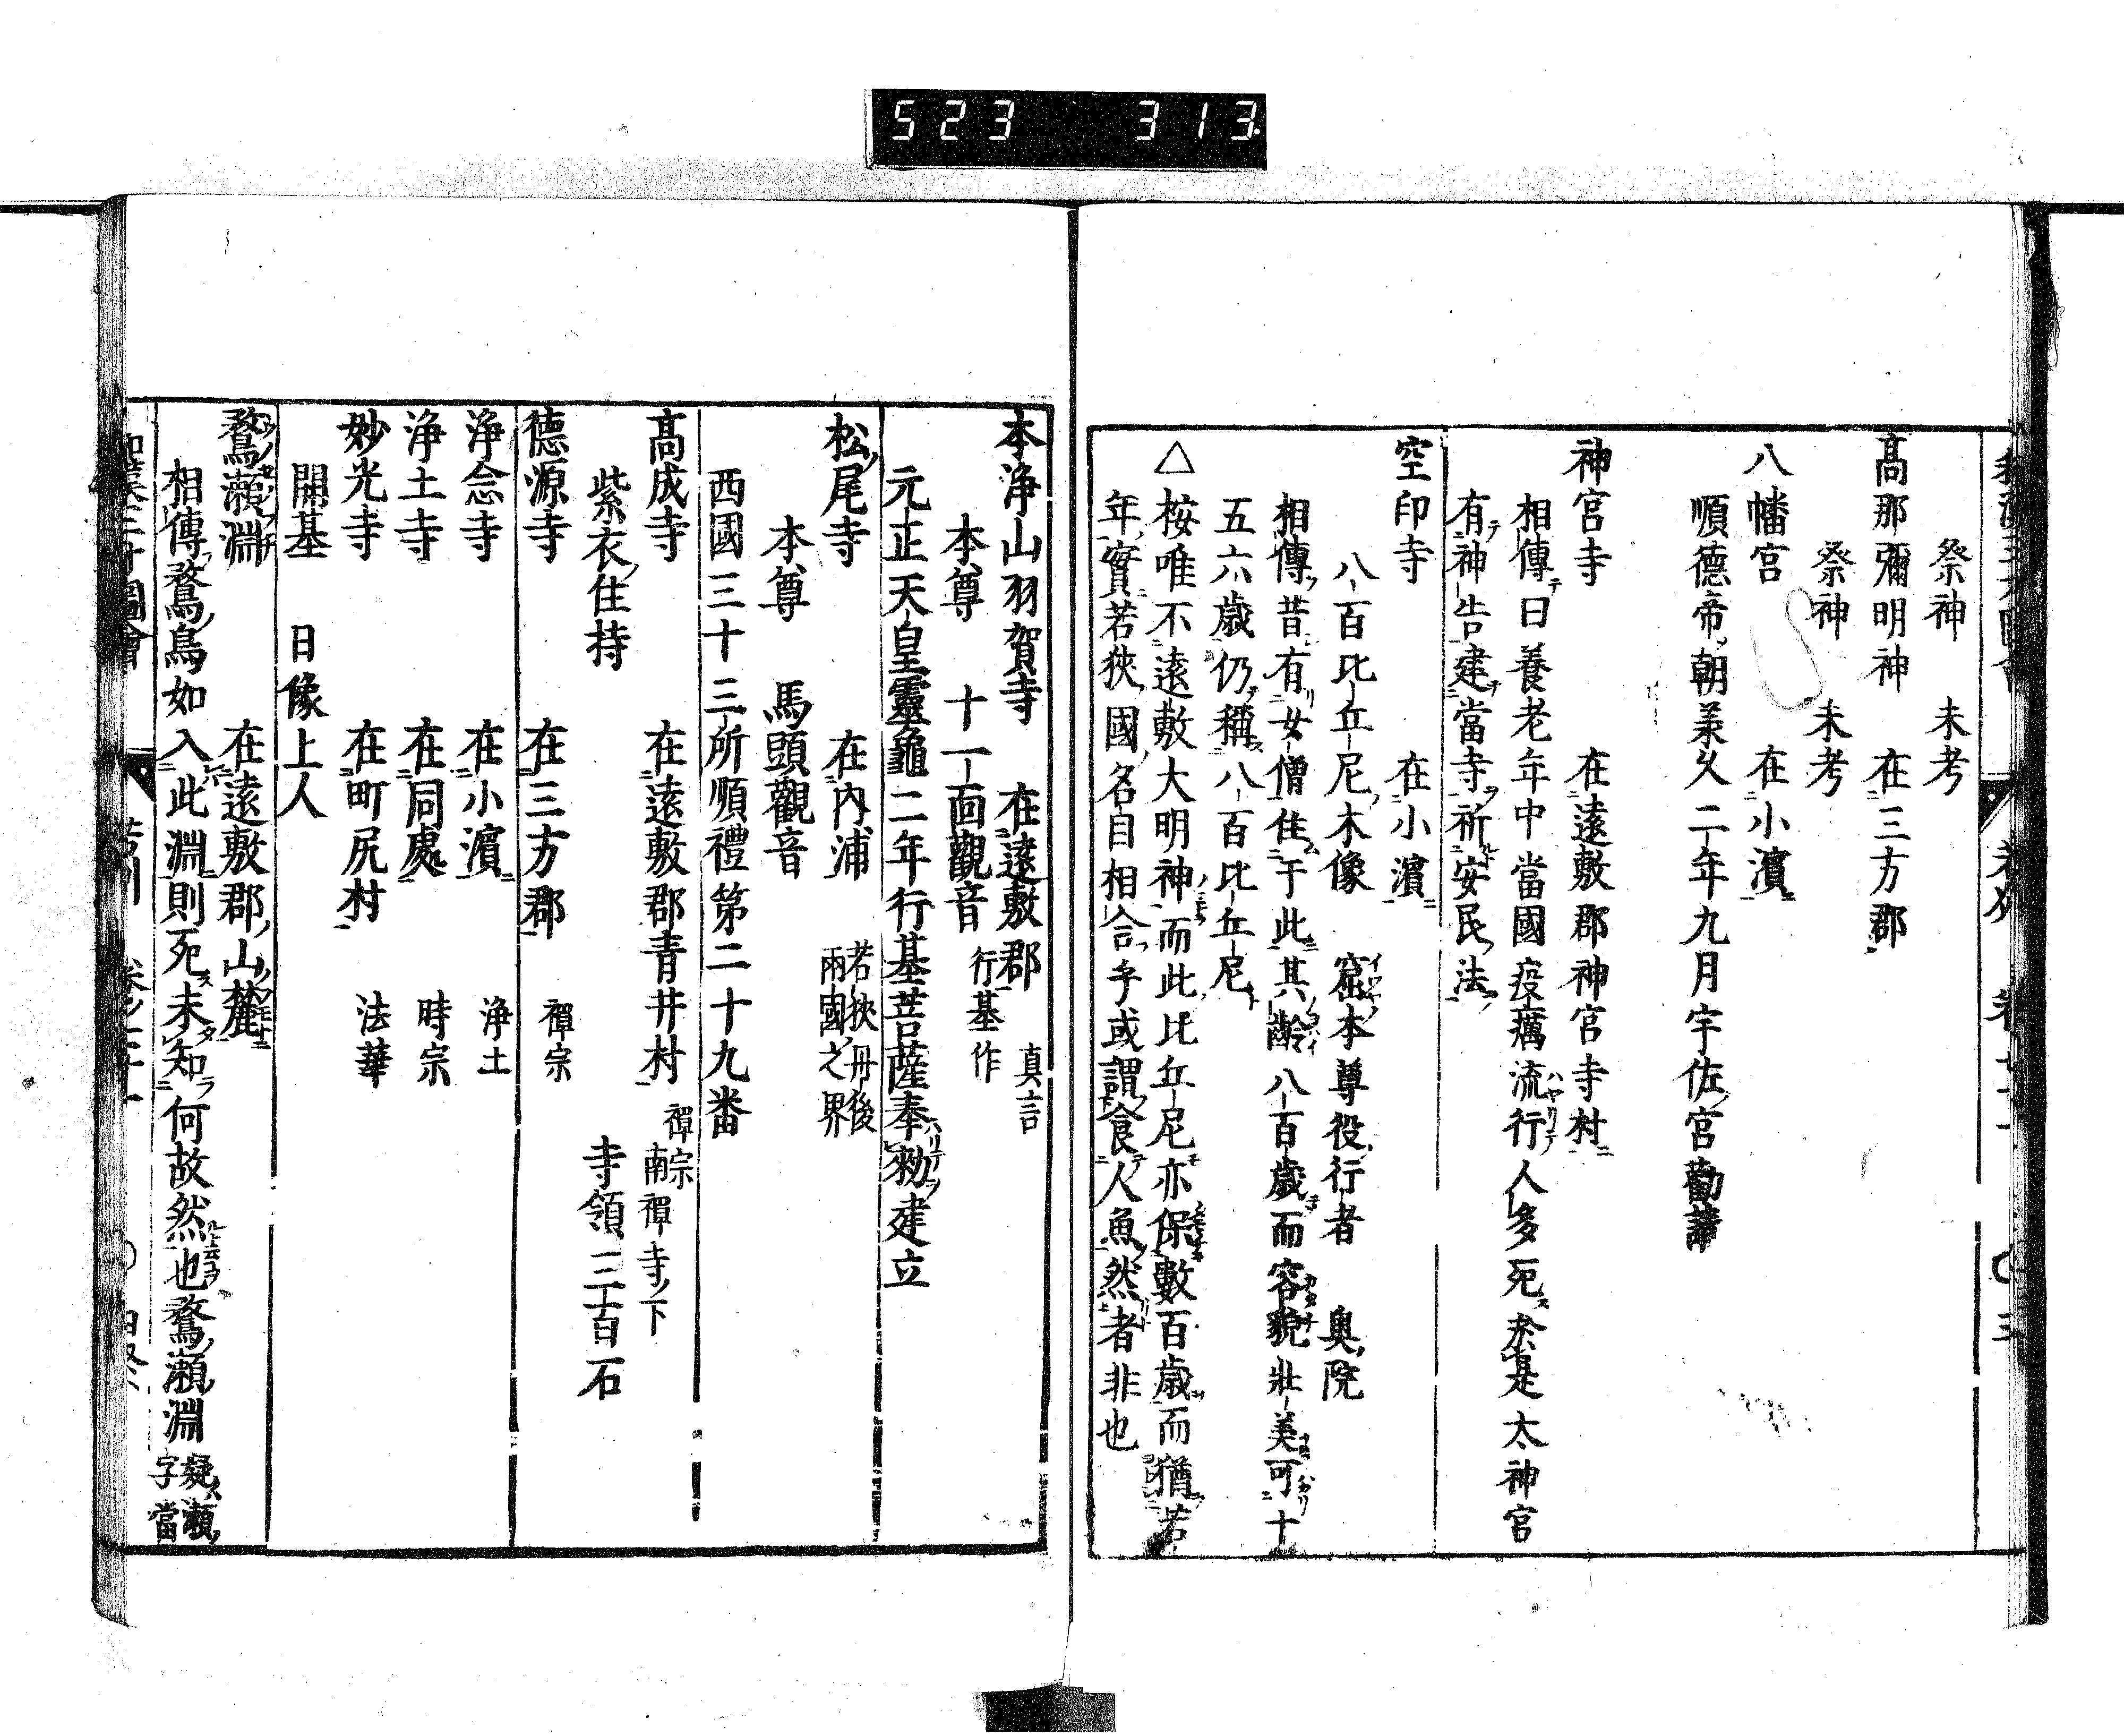 523 313
祭神 未考
髙那彌明神 在三方郡
祭神 未考
八幡宮 在小濵
順德帝朝美久二年九月宇佐宮勸請
神宮寺 在遠敷郡神宮寺村
相傳曰養老年中當國疫癘流行人多死於是太神宮
有神告建當寺祈安民法
空印寺 在小濵
八百比丘尼木像 窟本尊役行者 奥院
相傳昔有女僧住于此其齡八百歳而容貌壯美可十
五六歳仍稱八百比丘尼
△按唯不遠敷大明神而此比丘尼亦保數百歳而猶若
年實若狹國名自相合乎或謂食人魚然者非也
本浄山羽賀寺 在遠敷郡 真言
本尊 十一面觀音 行基作
元正天皇靈龜二年行基菩薩奉勅建立
松尾寺 在內浦 若狹丹後兩國之界
本尊 馬頭觀音
西國三十三所順禮第二十九番
髙成寺 在遠敷郡青井村 禪宗南禪寺ノ下
紫衣住持 寺領三百石
德源寺 在三方郡 禪宗
浄念寺 在小濵 浄土
浄土寺 在同處 時宗
妙光寺 在町尻村 法華
開基 日像上人
鶩瀬淵 在遠敷郡山麓
相傳鶩鳥如入此淵則死未知何故然也鶩瀬淵 疑瀬字當